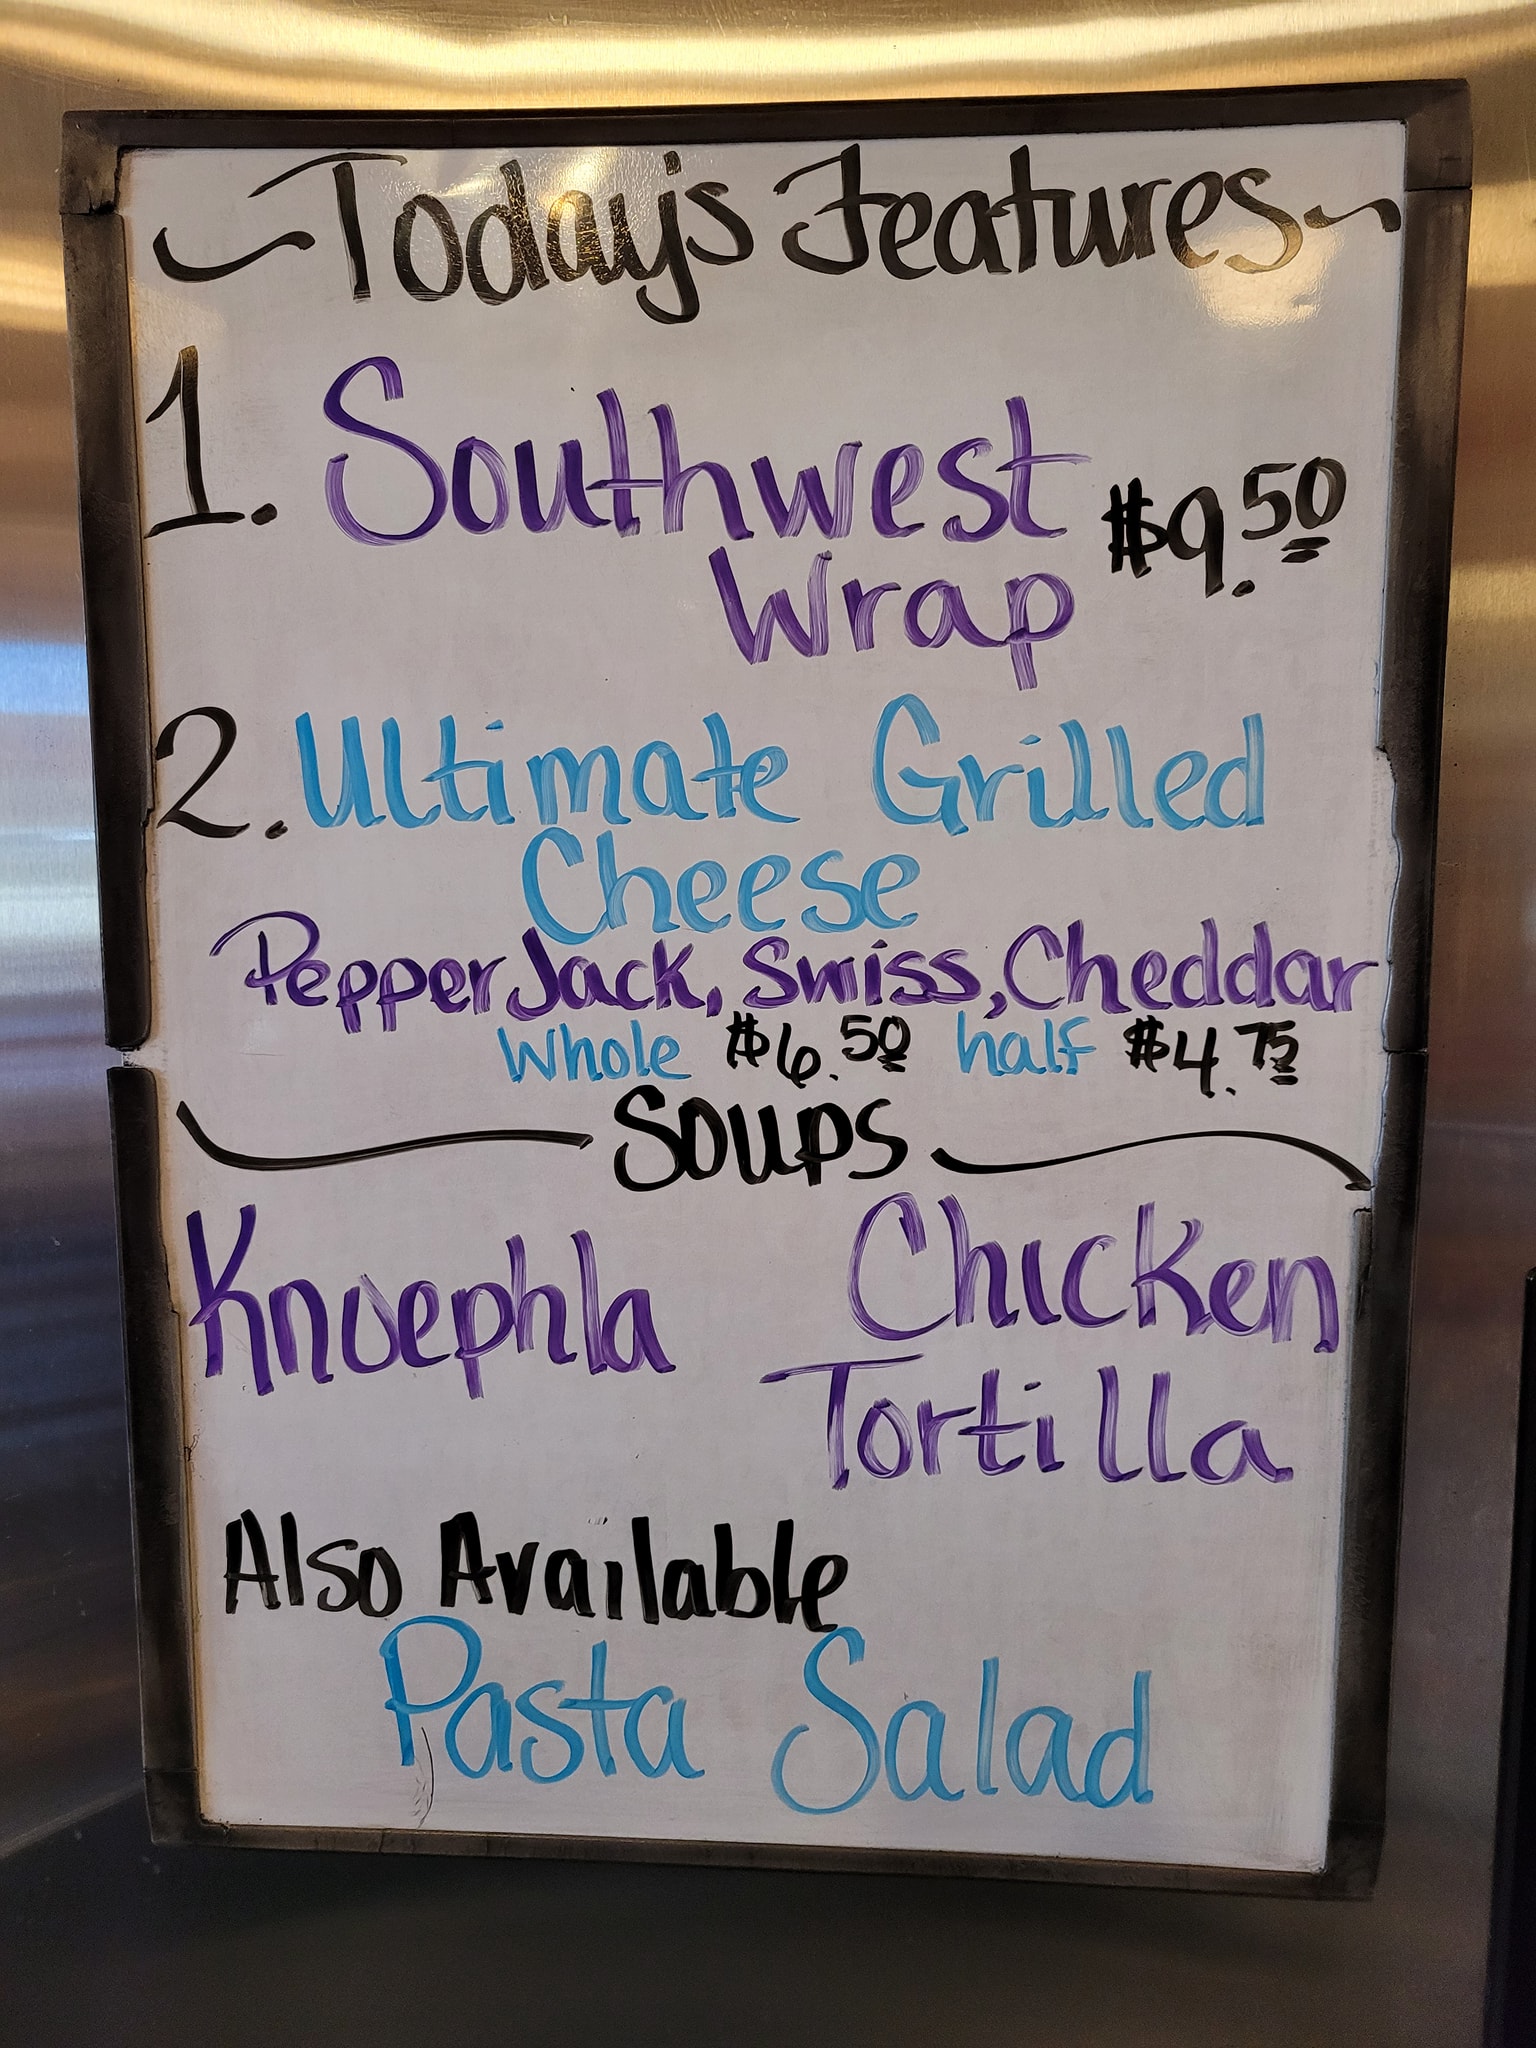 Today's Features
1. Southwest
Wrap $9.50
2. Ultimate Grilled
Cheese
Pepper Jack, Swiss, Cheddar
Whole $6.50 half $4.75
Soups
Knoephla Chicken
Tortilla
Also Available
Pasta Salad